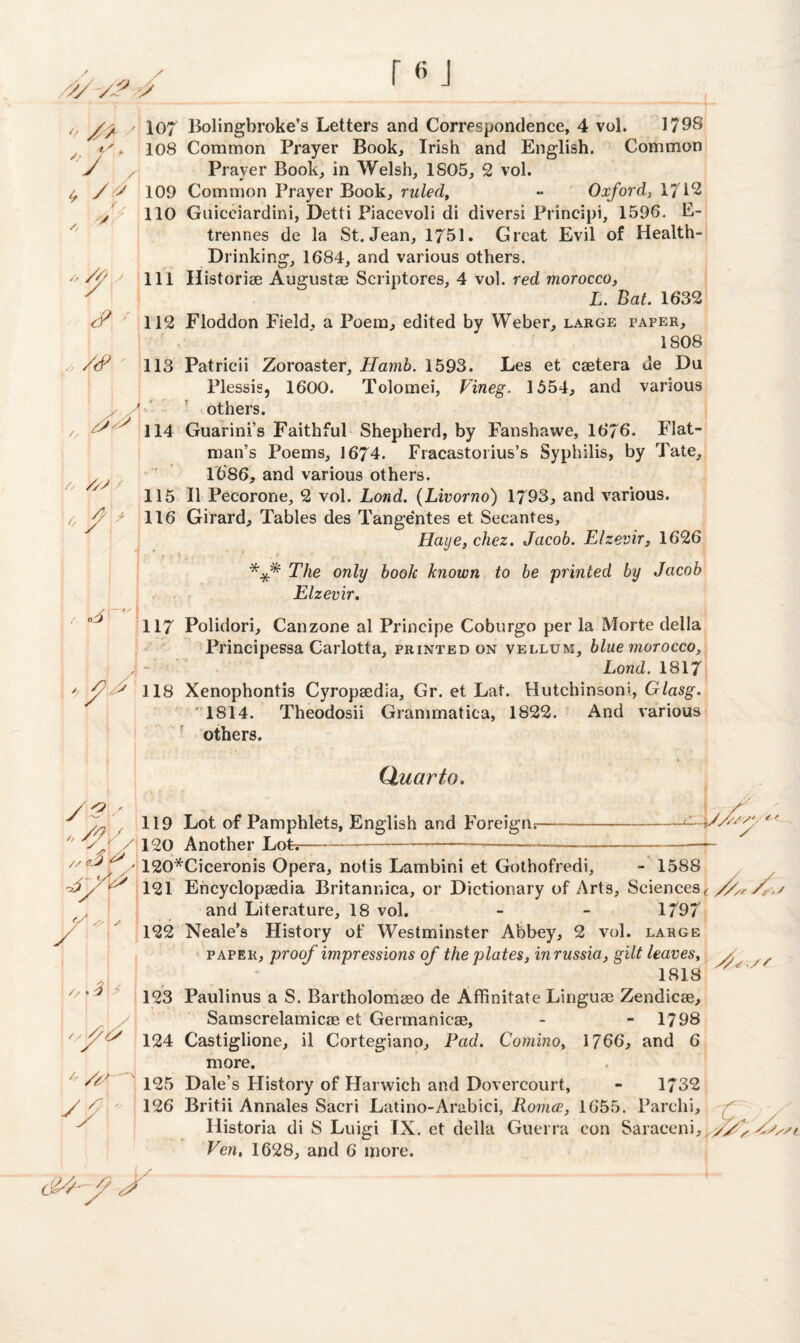 [ 6 ]
107 Bolingbroke's Letters and Correspondence, 4 vol. 1798
108 Common Prayer Book, Irish and English. Common
Prayer Book, in Welsh, 1805, 2 vol.
109 Common Prayer Book, ruled, - Oxford, 1712
110 Guicciardini, Detti Piacevoli di diversi Principi, 1596. E-
trennes de la St. Jean, 1751. Great Evil of Health-
Drinking, 1684, and various others.
111 Historiæ Augustæ Scriptores, 4 vol. red morocco,
L. Bat. 1632
112 Floddon Field, a Poem, edited by Weber, LARGE PAPER,
1808
113 Patricii Zoroaster, Hamb. 1593. Les et cætera de Du
Plessis, 1600. Tolomei, Vineg. 1554, and various
others.
114 Guarini's Faithful Shepherd, by Fanshawe, 1676. Flat-
man's Poems, 1674. Fracastorius's Syphilis, by Tate,
1686, and various others.
115 Il Pecorone, 2 vol. Lond. (Livorno) 1793, and various.
116 Girard, Tables des Tangentes et Secantes,
Haye, chez. Jacob. Elzevir, 1626
*** The only book known to be printed by Jacob
Elzevir.
117 Polidori, Canzone al Principe Coburgo per la Morte della
Principessa Carlotta, PRINTED ON VELLUM, blue morocco,
Lond. 1817
118 Xenophontis Cyropædia, Gr. et Lat. Hutchinsoni, Glasg.
1814. Theodosii Grammatica, 1822. And various
others.
Quarto.
119 Lot of Pamphlets, English and Foreign.
120 Another Lot.
120*Ciceronis Opera, notis Lambini et Gothofredi, - 1588
121 Encyclopædia Britannica, or Dictionary of Arts, Sciences,
and Literature, 18 vol. - - 1797
122 Neale's History of Westminster Abbey, 2 vol. LARGE
PAPER, proof impressions of the plates, in russia, gilt leaves,
1818
123 Paulinus a S. Bartholomæo de Affinitate Linguæ Zendicæ,
Samscrelamicæ et Germanicæ, - - 1798
124 Castiglione, il Cortegiano, Pad. Comino, 1766, and 6
more.
125 Dale's History of Harwich and Dovercourt, - 1732
126 Britii Annales Sacri Latino-Arabici, Romæ, 1655. Parchi,
Historia di S Luigi IX. et della Guerra con Saraceni,
Ven. 1628, and 6 more.